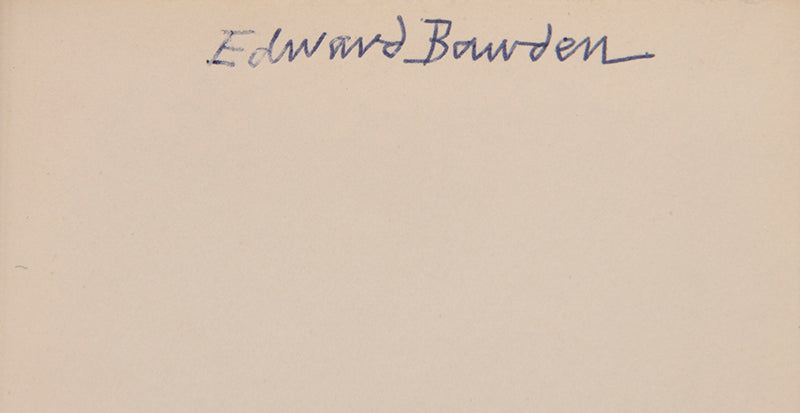 Edward Bawden